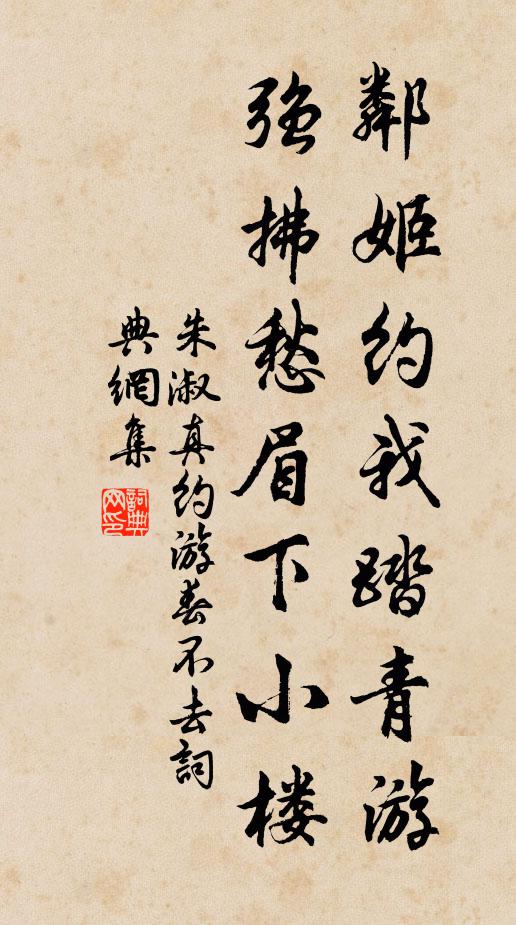 鄰姬约我踏青游
强拂愁眉下小楼
朱淑真约游春不去詞
典網集
詞典网印